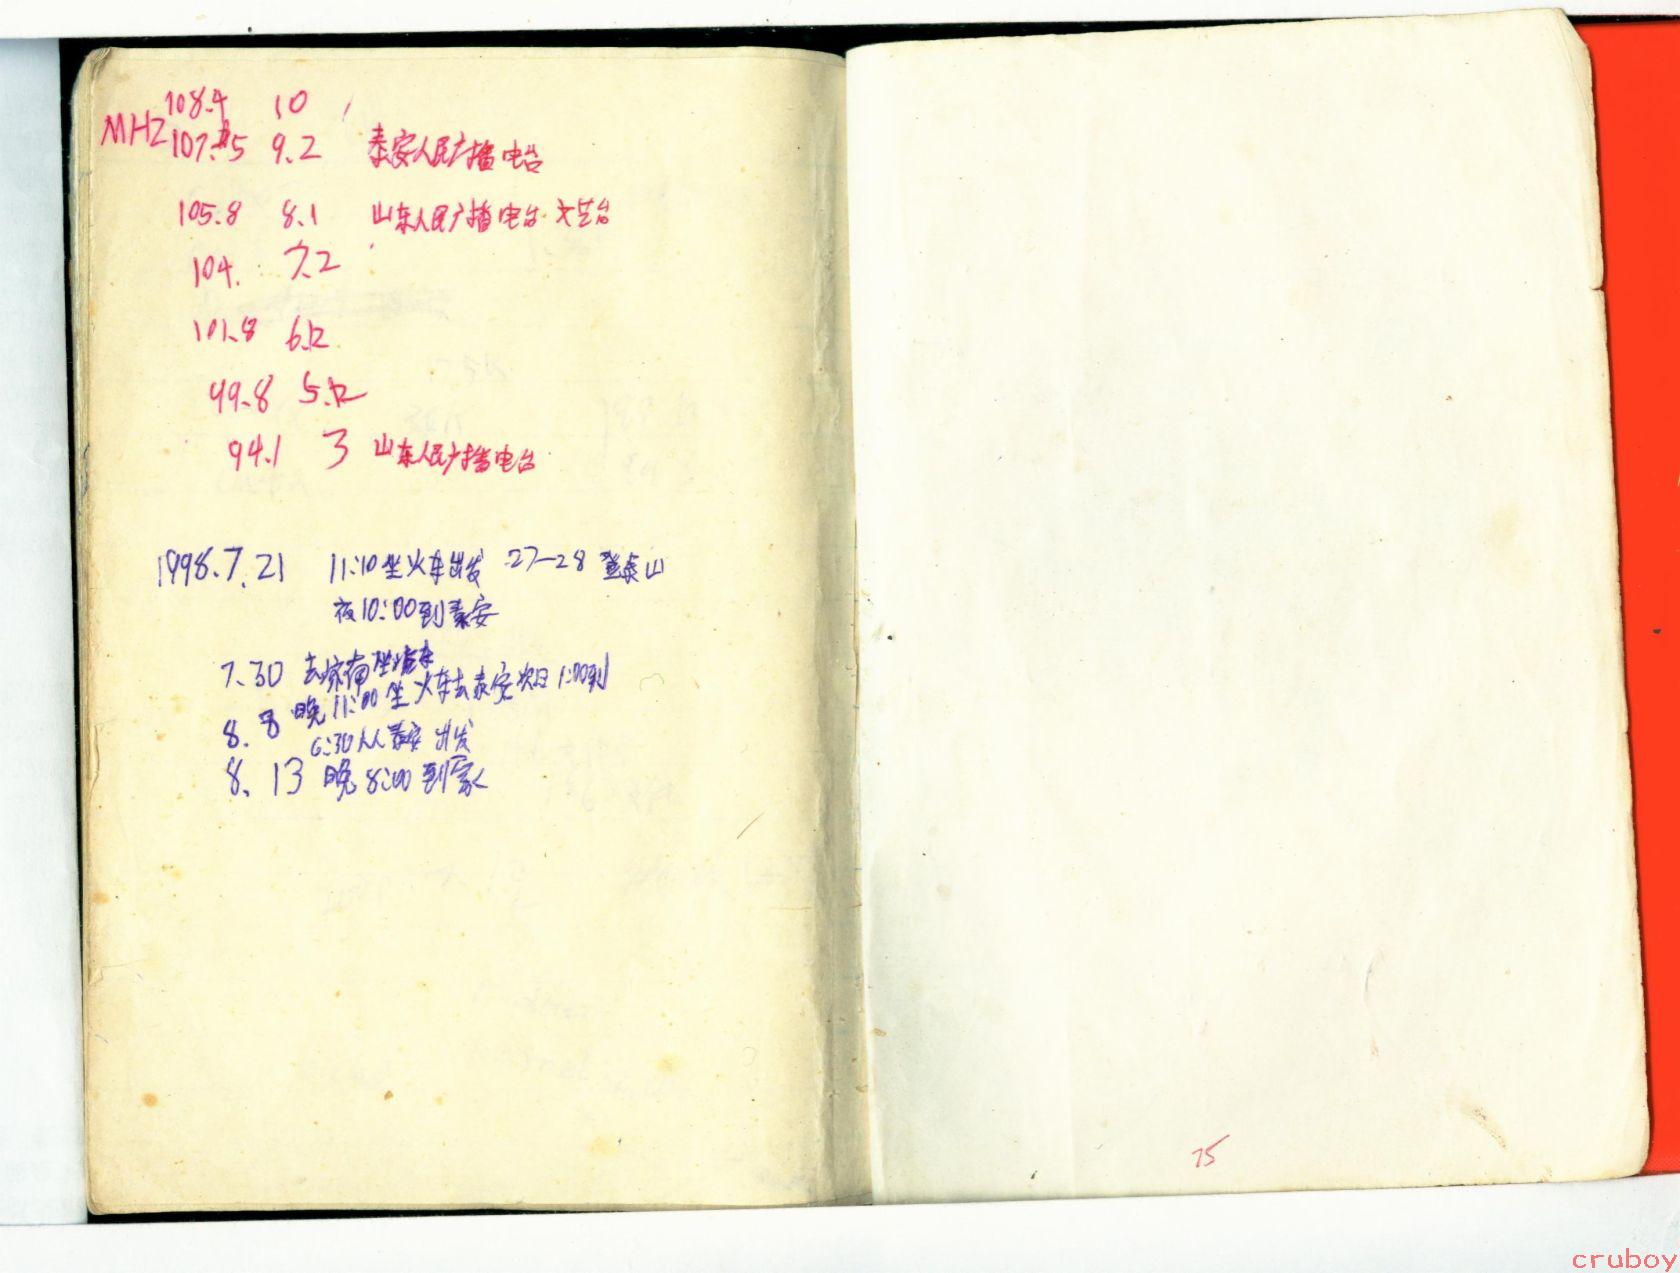 108.4 10
MHZ 107.5 9.2 泰安人民广播电台
105.8 8.1 山东人民广播电台·文艺台
104. 7.2
101.8 6.2
99.8 5.2
94.1 3 山东人民广播电台
1998.7.21 11:10坐火车出发 27—28 登泰山
夜10:00到泰安
7.30 去
8.8 晚11:00坐火车去泰安次日1:00到
6:30从泰安出发
8.13 晚8:00到家
75
cruboy